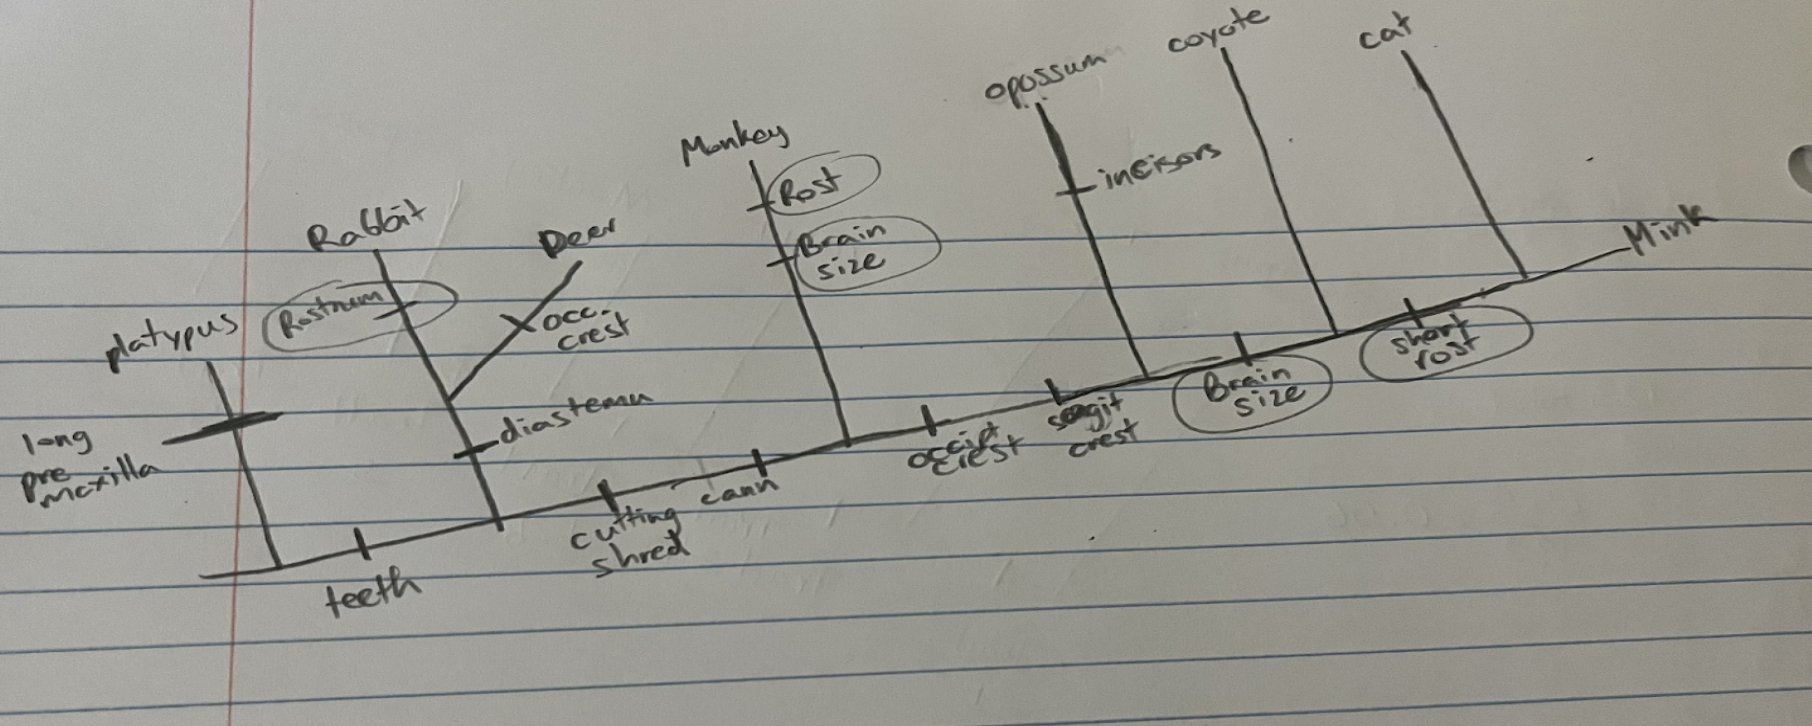 cat
coyote
opossum
Monkey
incisors
Rost
Rabbit
Deer
Brain
size
Mink
Rostrum
platypus
occ.
crest
short
rost
Brain
size
diastema
long
pre
maxilla
sagit
crest
occipt
crest
cann
cutting
shred
teeth